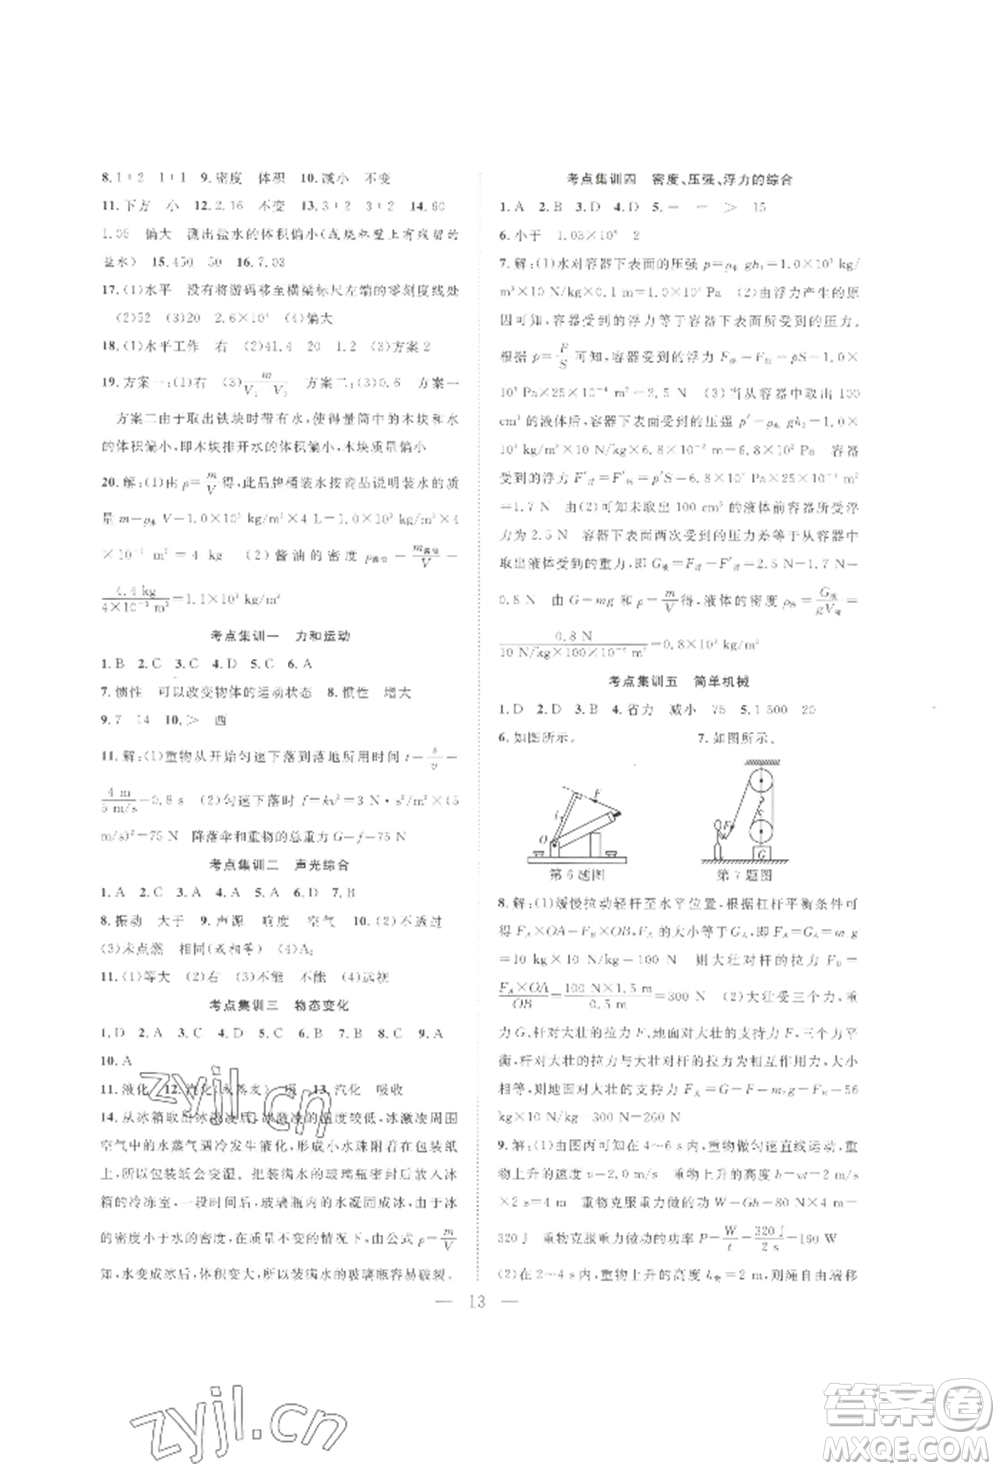 8.1∶2　1∶1　9.密度　体积　10.减小　不变
11.下方　小　12.2.16　不变　13.3∶2　3∶2　14.60
1.05　偏大　测出盐水的体积偏小(或烧杯壁上有残留的
盐水)　15.450　50　16.7.03
17.(1)水平　没有将游码移至横梁标尺左端的零刻度线处
(2)52　(3)20　2.6×10³　(4)偏大
18.(1)水平工作　右　(2)41.4　20　1.2　(3)方案2
19.方案一:(1)右　(3)m/V₂-V₁　方案二:(3)0.6　方案一
方案二由于取出铁块时带有水,使得量筒中的木块和水
的体积偏小,即木块排开水的体积偏小,木块质量偏小
20.解:(1)由ρ=m/V得,此品牌桶装水按商品说明装水的质
量m=ρ水V=1.0×10³ kg/m³×4 L=1.0×10³ kg/m³×4
×10⁻³ m³=4 kg　(2)酱油的密度ρ酱油=m酱油/V=
4.4 kg/4×10⁻³ m³=1.1×10³ kg/m³
考点集训一　力和运动
1.B　2.C　3.C　4.D　5.C　6.A
7.惯性　可以改变物体的运动状态　8.惯性　增大
9.7　14　10.>　西
11.解:(1)重物从开始匀速下落到落地所用时间t=s/v=
4 m/5 m/s=0.8 s　(2)匀速下落时f=kv²=3 N·s²/m²×(5
m/s)²=75 N　降落伞和重物的总重力G=f=75 N
考点集训二　声光综合
1.A　2.C　3.A　4.D　5.A　6.C　7.C
8.振动　大于　9.声源　响度　空气　10.(2)不透过
(3)未点燃　相同(或相等)　(4)A₂
11.(1)等大　(2)右　(3)不能　不能　(4)远视
考点集训三　物态变化
1.D　2.A　3.C　4.A　5.B　6.D　7.C　8.C　9.A
10.A
11.液化　12.汽化(或蒸发)　吸　13.汽化　吸收
14.从冰箱取出冰激凌后,冰激凌的温度较低,冰激凌周围
空气中的水蒸气遇冷发生液化,形成小水珠附着在包装纸
上,所以包装纸会变湿。把装满水的玻璃瓶密封后放入冰
箱的冷冻室,一段时间后,玻璃瓶内的水凝固成冰,由于冰
的密度小于水的密度,在质量不变的情况下,由公式ρ=m/V
知,水变成冰后,体积变大,所以装满水的玻璃瓶易破裂。
考点集训四　密度、压强、浮力的综合
1.A　2.B　3.D　4.D　5.=　=　>　15
6.小于　1.03×10⁴　2
7.解:(1)水对容器下表面的压强p=ρ水gh₁=1.0×10³ kg/
m³×10 N/kg×0.1 m=1.0×10³ Pa　(2)由浮力产生的原
因可知,容器受到的浮力等于容器下表面受到的压力。
根据p=F/S可知,容器受到的浮力F浮=F压=pS=1.0×
10³ Pa×25×10⁻⁴ m²=2.5 N　(3)当从容器中取出100
cm³的液体后,容器下表面受到的压强p′=ρ水gh₂=1.0×
10³ kg/m³×10 N/kg×6.8×10⁻² m=6.8×10² Pa　容器
受到的浮力F′浮=F′压=p′S=6.8×10² Pa×25×10⁻⁴ m²
=1.7 N　由(2)可知未取出100 cm³的液体前空容器受
到的浮力,容器下表面两次受到的压力差等于从容器中
取出液体受到的重力,即G液=F浮-F′浮=2.5 N-1.7 N=
0.8 N　由G=mg和ρ=m/V得,液体的密度ρ液=G液/gV液=
0.8 N/10 N/kg×100×10⁻⁶ m³=0.8×10³ kg/m³
考点集训五　简单机械
1.D　2.D　3.B　4.省力　减小　75　5.1 500　20
6.如图所示。　7.如图所示。
O　l　F
F　G
第6题图　第7题图
8.解:(1)缓慢拉动轻杆至水平位置,根据杠杆平衡条件可
得F_A×OA=F_B×OB,F_A大小等于G_A,即F_A=G_A=m_A g
=10 kg×10 N/kg=100 N　则大壮对杆的拉力F_B=
F_A×OA/OB=100 N×1.5 m/0.5 m=300 N　(2)大壮受三个力,重力
G,杆对大壮的拉力F,地面对大壮的支持力F支,三个力平
衡,杆对大壮的拉力与大壮对杆的拉力为相互作用力,大小
相等,则地面对大壮的支持力F支=G-F=m g-F=56
kg×10 N/kg-300 N=260 N
9.解:(1)由图丙可知在4~6 s内,重物做匀速直线运动,重
物上升的速度v=2.0 m/s　重物上升的高度h=vt=2 m/s
×2 s=4 m　重物克服重力做的功W=Gh=80 N×4 m=
320 J　重物克服重力做功的功率P=W/t=320 J/2 s=160 W
(2)在2~4 s内,重物上升的高度h=2 m,则绳自由端移
— 13 —
zyjl.cn
zyjl.cn
答案圈
MXQE.COM